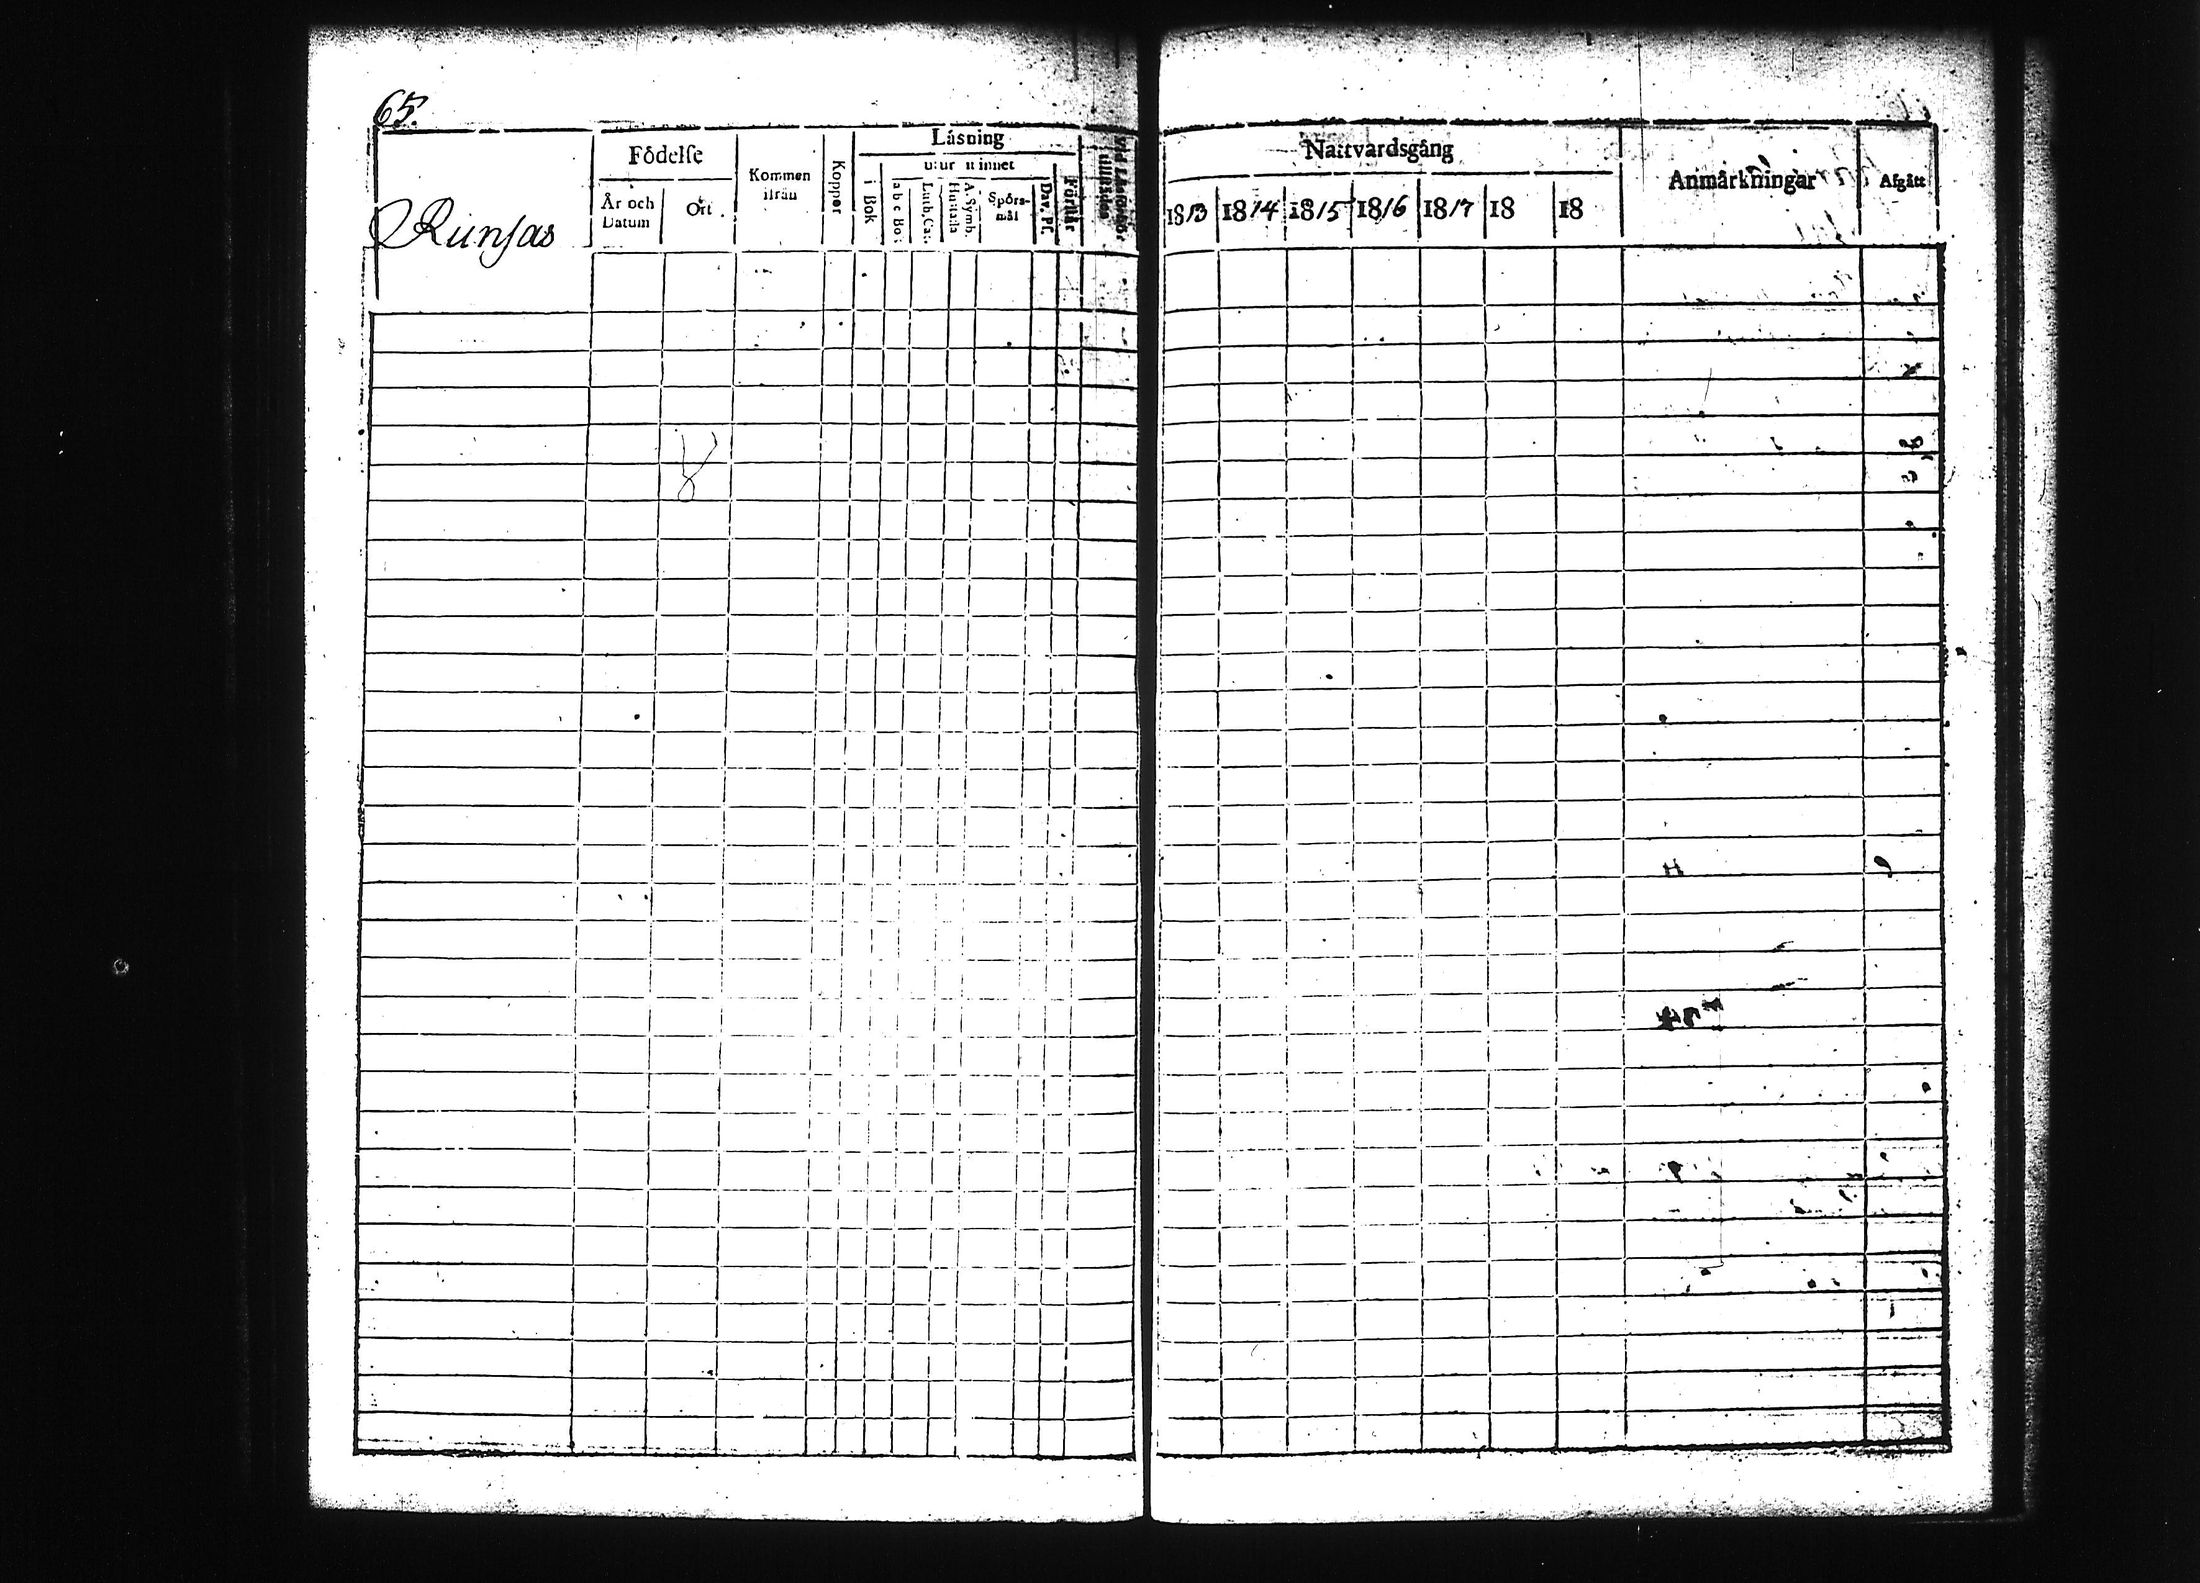 65.
Runsas
Födelse
År och Datum
Ort
Kommen ifrån
Koppor
Läsning
utur minnet
i Bok
a b c Bok
Luth. Cat.
Hustafla
A. Symb.
Spörsmål
Dav. Ps.
Förstår
Nattvardsgång
1813 1814 1815 1816 1817 18 18
Anmärkningar
Afgått
8